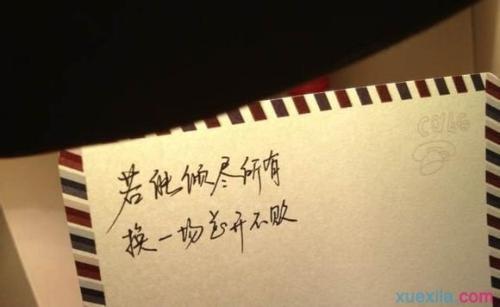 若能倾尽所有
换一场花开不败
xuexila.com